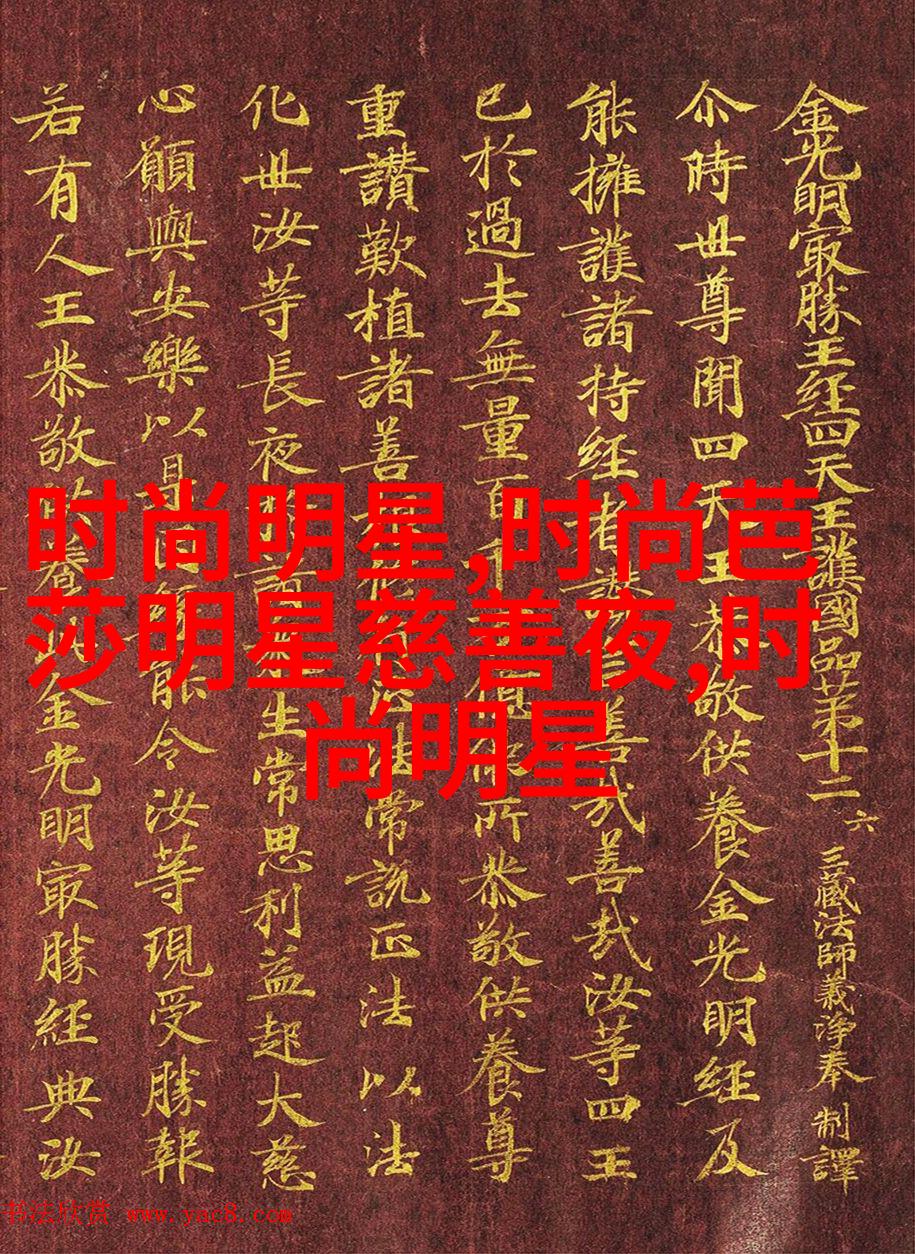 金光明㝡勝王經四天王護國品苐十二 六 三藏法師義淨奉 制譯
尒時世尊聞四天王恭敬供養金光明經及
能擁護諸持經者讚言善哉善哉汝等四王
已於過去無量百千億佛所恭敬供養尊
重讚歎植諸善常說正法以法
化世汝等長夜諸生常思利益起大慈
心願與安樂以是因能令汝等現受勝報
若有人王恭敬供養金光明㝡勝經典汝
时尚明星,时尚芭
莎明星慈善夜,时
尚明星
书法欣赏 www.yac8.com